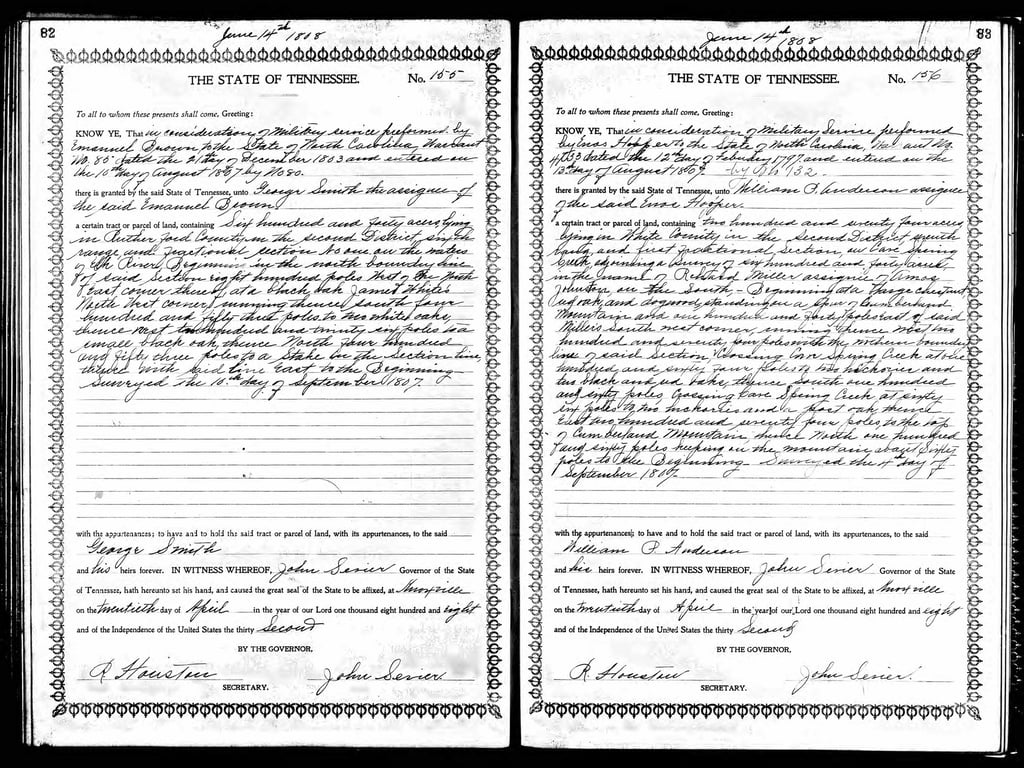 82
June 14th 1808
THE STATE OF TENNESSEE. No. 155
To all to whom these presents shall come, Greeting:
KNOW YE, That in consideration of Military service preformed by
Emanuel Brown to the State of North Carolina, Warrant
No. 85 dated the 21 day of December 1803 and entered on
the 10th day of August 1807 by No 80.
there is granted by the said State of Tennessee, unto George Smith the assignee of
the said Emanuel Brown
a certain tract or parcel of land, containing Six hundred and forty acres lying
in Ruther ford County in the second District, sixth
range and fractional section No one on the waters
of Elk River, Beginning in the north boundary line
of said section eight hundred poles West of the North
East corner thereof at a black oak James White's
North West corner, running thence south four
hundred and fifty three poles to two white oaks,
thence West two hundred and twenty six poles to a
small black oak, thence North four hundred
and fifty three poles to a Stake in the section line,
thence with said line East to the Beginning
Surveyed the 10th day of September 1807.
with the appurtenances; to have and to hold the said tract or parcel of land, with its appurtenances, to the said
George Smith
and his heirs forever. IN WITNESS WHEREOF, John Sevier Governor of the State
of Tennessee, hath hereunto set his hand, and caused the great seal of the State to be affixed, at Knoxville
on the twentieth day of April in the year of our Lord one thousand eight hundred and eight
and of the Independence of the United States the thirty Second
BY THE GOVERNOR.
R Houston John Sevier
SECRETARY.
83
June 14th 1808
THE STATE OF TENNESSEE. No. 156
To all to whom these presents shall come, Greeting:
KNOW YE, That in consideration of Military Service preformed
by Enos Hooper to the State of North Carolina, Warrant No
4753 dated the 12th day of February 1797 and entered on the
13th day of August 1807. by No 132.
there is granted by the said State of Tennessee, unto William P. Anderson assignee
of the said Enos Hooper.
a certain tract or parcel of land, containing two hundred and seventy four acres
lying in White County in the Second District,
and first fractional Section, on Cane Spring
Creek adjoining a Survey of six hundred and forty acres
in the name of Richard Miller assignee of Amos
Johnston on the South - Beginning at a large chestnut,
red oak, and dogwood standing on a spur of Cumberland
Mountain and one hundred and forty poles East of said
Millers South west corner, running thence West two
hundred and seventy four poles with the northern boundary
line of said Section, Crossing Cane Spring Creek at one
hundred and sixty four poles to two hickories and
two black and red oaks, thence south one hundred
and sixty poles Crossing Cane Spring Creek at sixty
six poles to two hickories and a post oak, thence
East two hundred and seventy four poles to the top
of Cumberland Mountain, thence North one hundred
and sixty poles keeping on the mountain about sixty
poles to the Beginning. Surveyed the 4th day of
September 1807.
with the appurtenances; to have and to hold the said tract or parcel of land, with its appurtenances, to the said
William P. Anderson
and his heirs forever. IN WITNESS WHEREOF, John Sevier Governor of the State
of Tennessee, hath hereunto set his hand, and caused the great seal of the State to be affixed, at Knoxville
on the twentieth day of April in the year of our Lord one thousand eight hundred and eight
and of the Independence of the United States the thirty Second
BY THE GOVERNOR.
R Houston John Sevier.
SECRETARY.